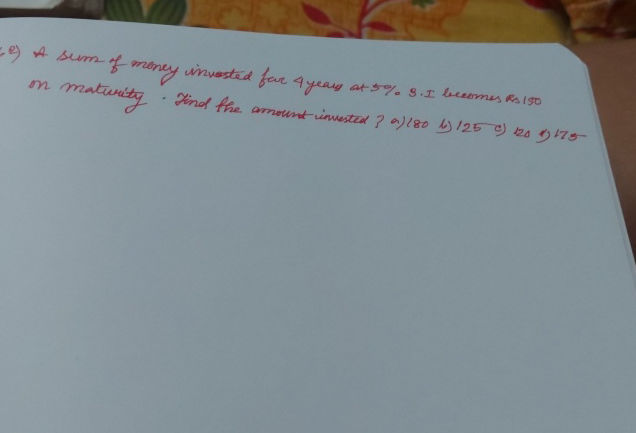 e) A sum of money invested for 4 years at 5% S.I becomes Rs 150
on maturity. Find the amount invested ? a) 180 b) 125 c) 120 d) 175